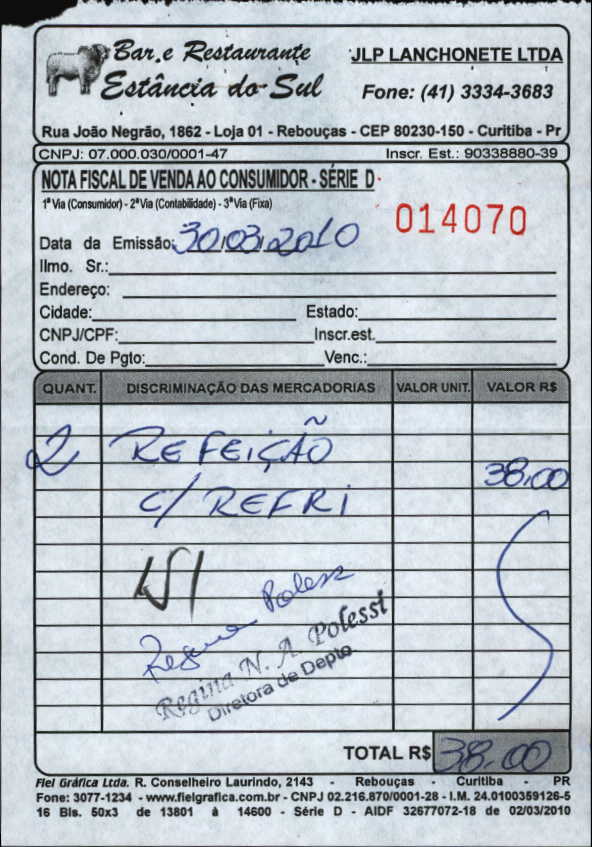 Bar e Restaurante
Estância do Sul
JLP LANCHONETE LTDA
Fone: (41) 3334-3683
Rua João Negrão, 1862 - Loja 01 - Rebouças - CEP 80230-150 - Curitiba - Pr
CNPJ: 07.000.030/0001-47 Inscr. Est.: 90338880-39
NOTA FISCAL DE VENDA AO CONSUMIDOR - SÉRIE D
1ª Via (Consumidor) - 2ª Via (Contabilidade) - 3ª Via (Fixa)
014070
Data da Emissão: 30/03/2010
Ilmo. Sr.:
Endereço:
Cidade: Estado:
CNPJ/CPF: Inscr.est.
Cond. De Pgto: Venc.:
QUANT. DISCRIMINAÇÃO DAS MERCADORIAS VALOR UNIT. VALOR R$
2 REFEIÇÃO 38,00
C/ REFRI
Regina Polessi
Regina N. A. Polessi
Diretora de Depto
TOTAL R$ 38,00
Fiel Gráfica Ltda. R. Conselheiro Laurindo, 2143 - Rebouças - Curitiba - PR
Fone: 3077-1234 - www.fielgrafica.com.br - CNPJ 02.216.870/0001-28 - I.M. 24.0100359126-5
16 Bls. 50x3 de 13801 à 14600 - Série D - AIDF 32677072-18 de 02/03/2010